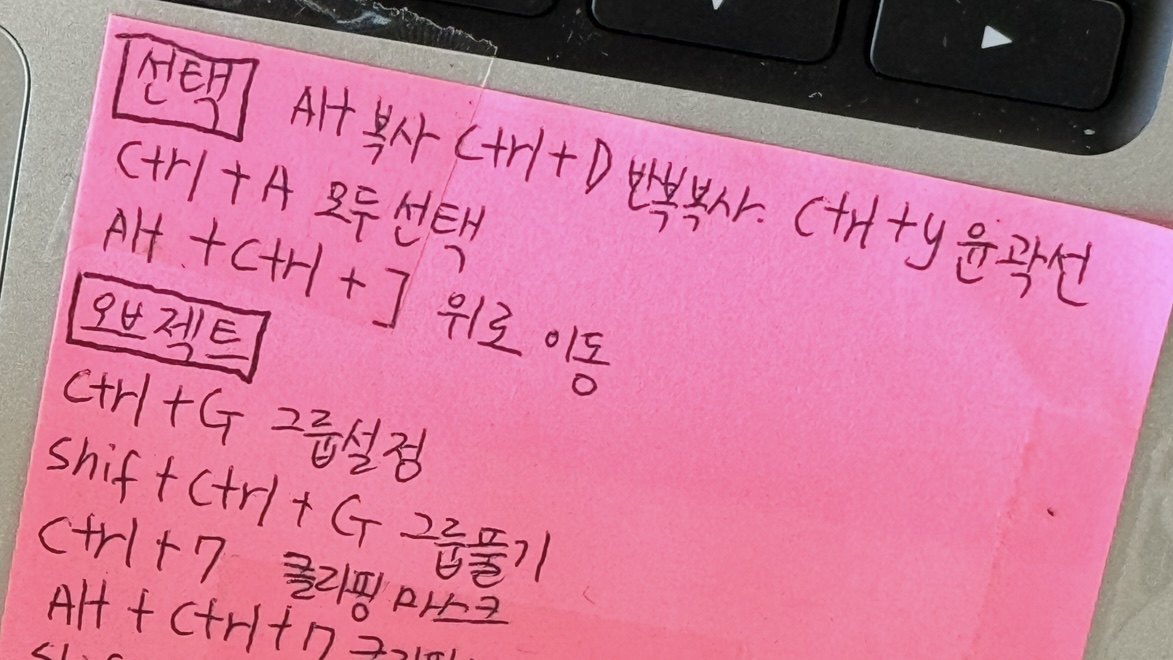 선택 Alt 복사 Ctrl+D 반복복사. Ctrl+y 윤곽선
Ctrl+A 모두선택
Alt+Ctrl+] 위로 이동
오브젝트
Ctrl+G 그룹설정
Shif+Ctrl+G 그룹풀기
Ctrl+7 클리핑 마스크
Alt+Ctrl+7